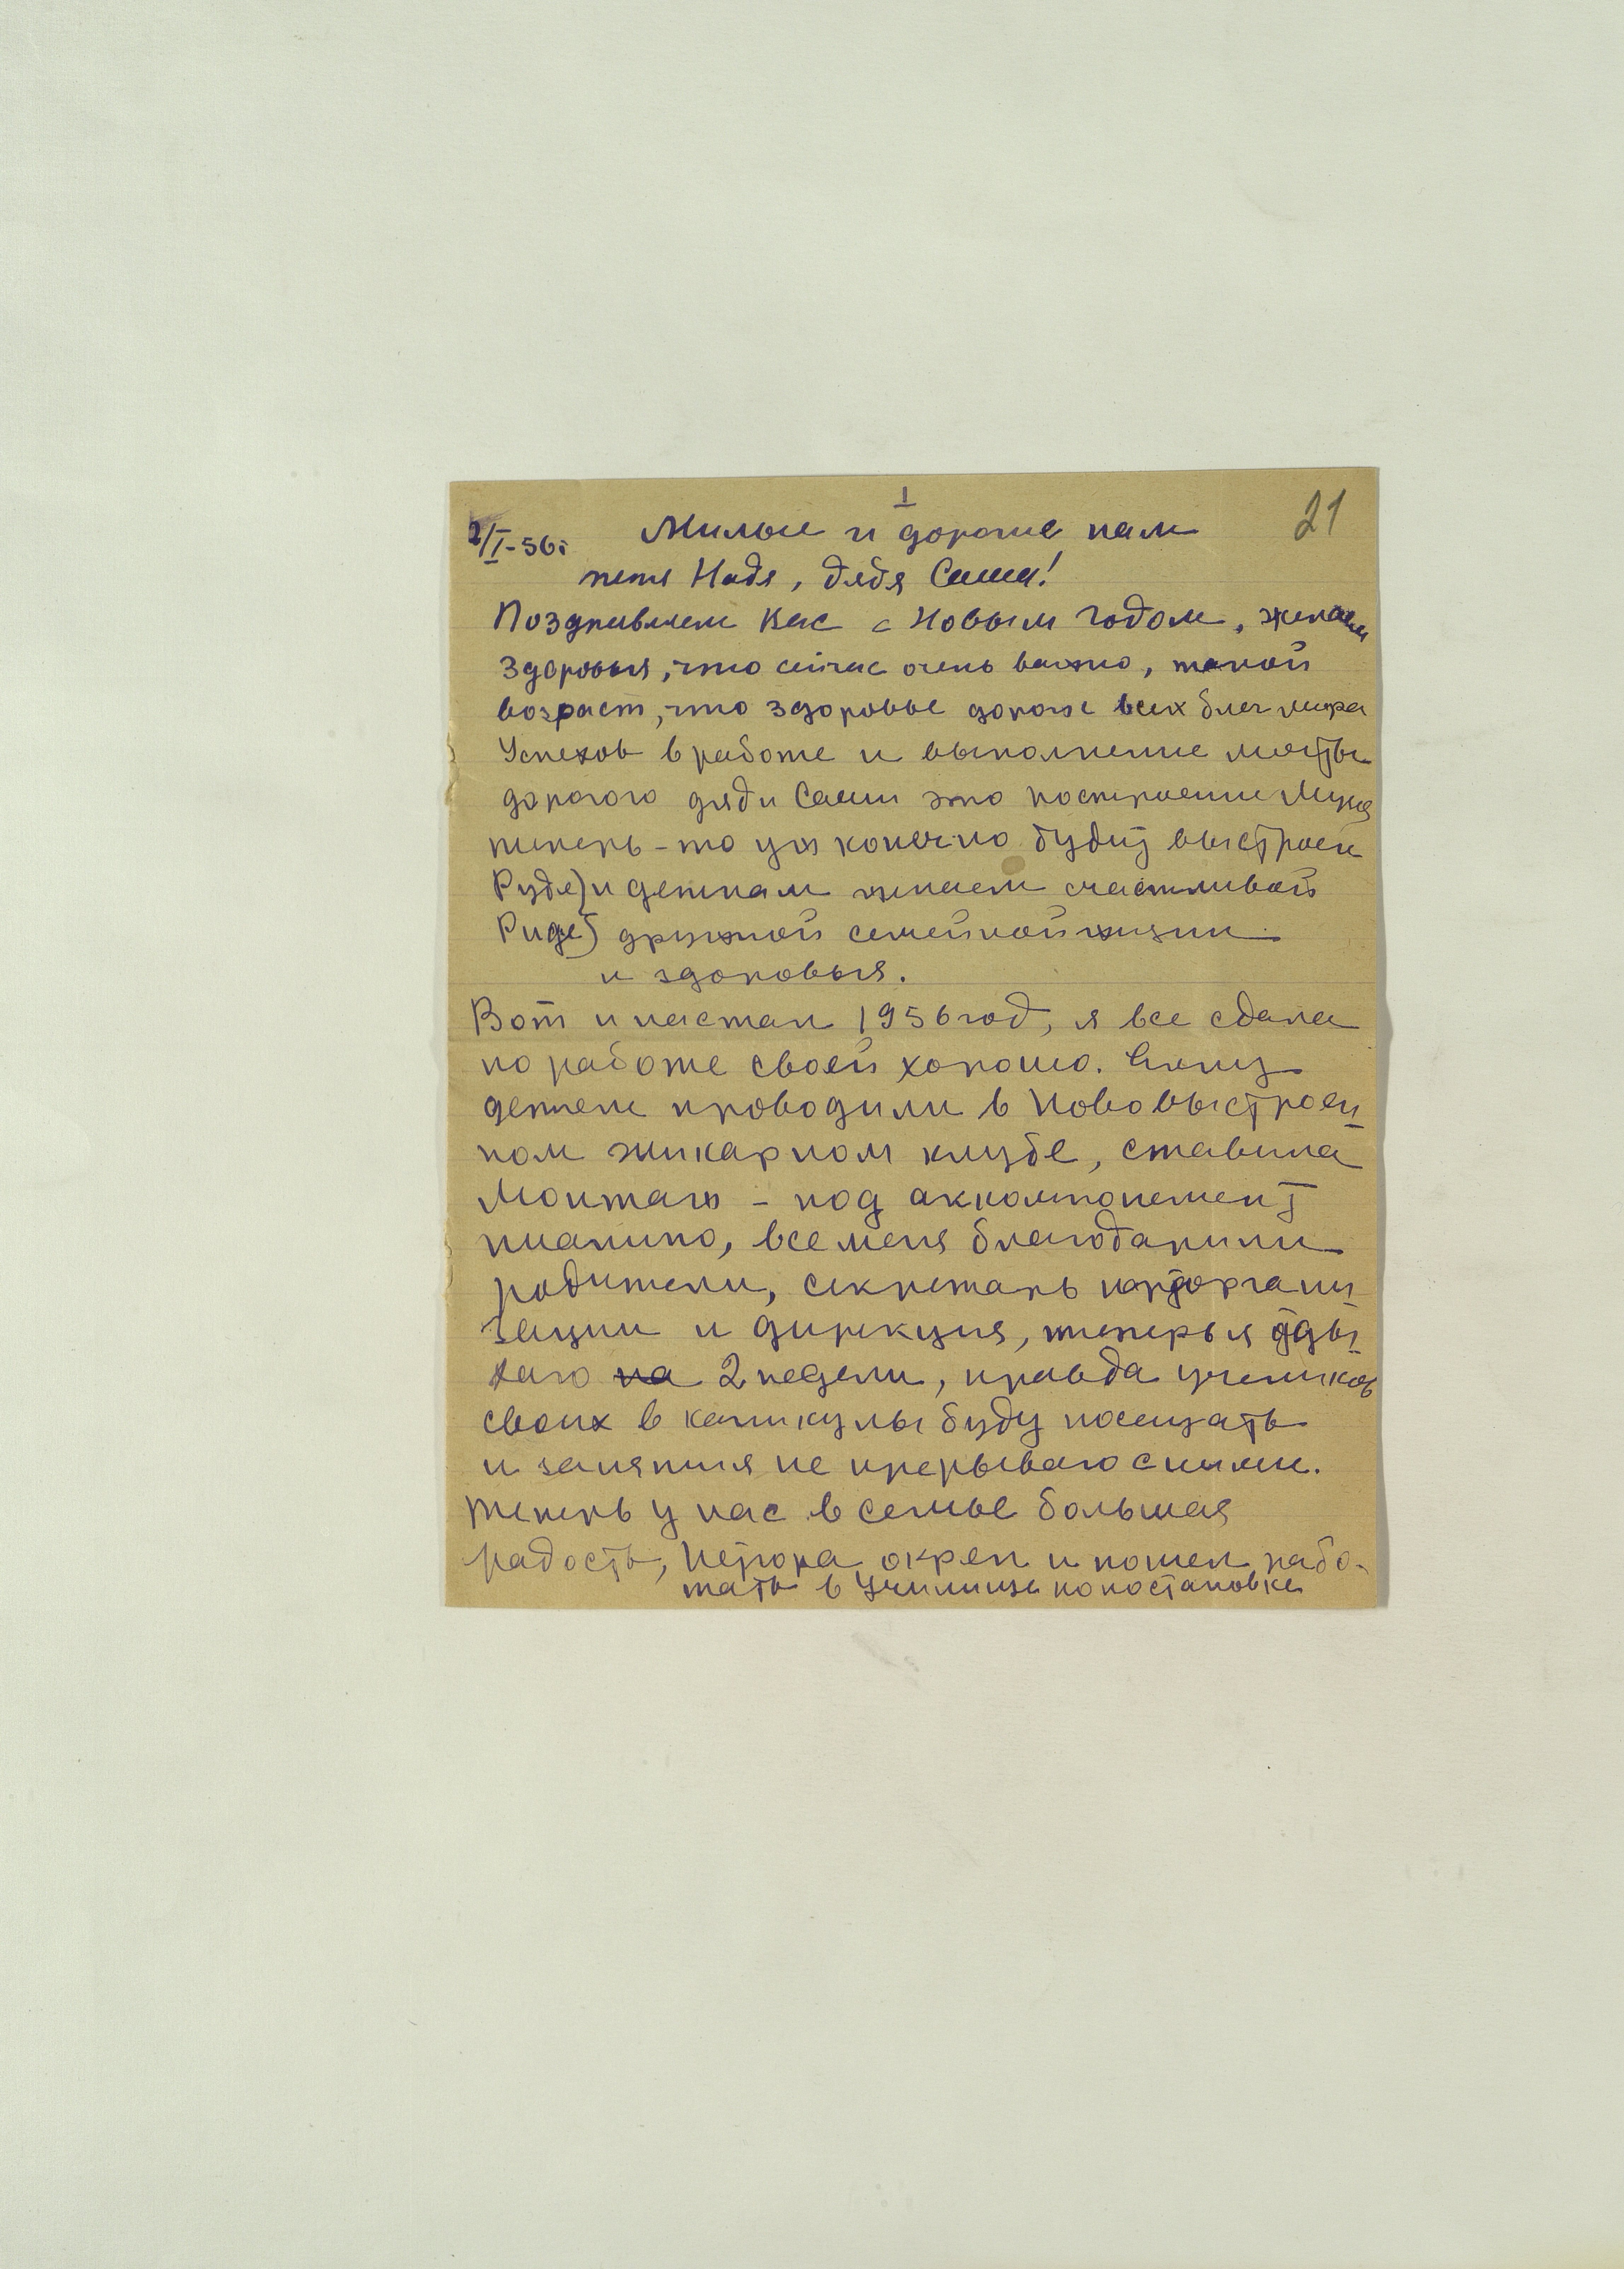 1
21
2/I-56г Милые и дорогие нам
тетя Надя, дядя Саша!
Поздравляем Вас с Новым Годом, желаем
здоровья, что сейчас очень важно, такой
возраст, что здоровье дороже всех благ мира
Успехов в работе и выполнение мечты
дорогого дяди Саши это построении Музея
теперь-то уж конечно будит выстроен
Руде) и деткам желаем счастливой
Риде) дружной семейной жизни
и здоровья.
Вот и настал 1956 год, я все сдала
по работе своей хорошо. Елку
детям проводили в Нововыстроен
ном шикарном клубе, ставила
Монтаж - под аккомпонемент
пианино, все меня благодарили
родители, секретарь парторгани
зации и дирекция, теперь я отды
хаю на 2 недели, правда учеников
своих в каникулы буду посещать
и занятия не прерываю с ними.
Теперь у нас в семье большая
радость, окреп и пошел рабо-
тать в Училище по постановке